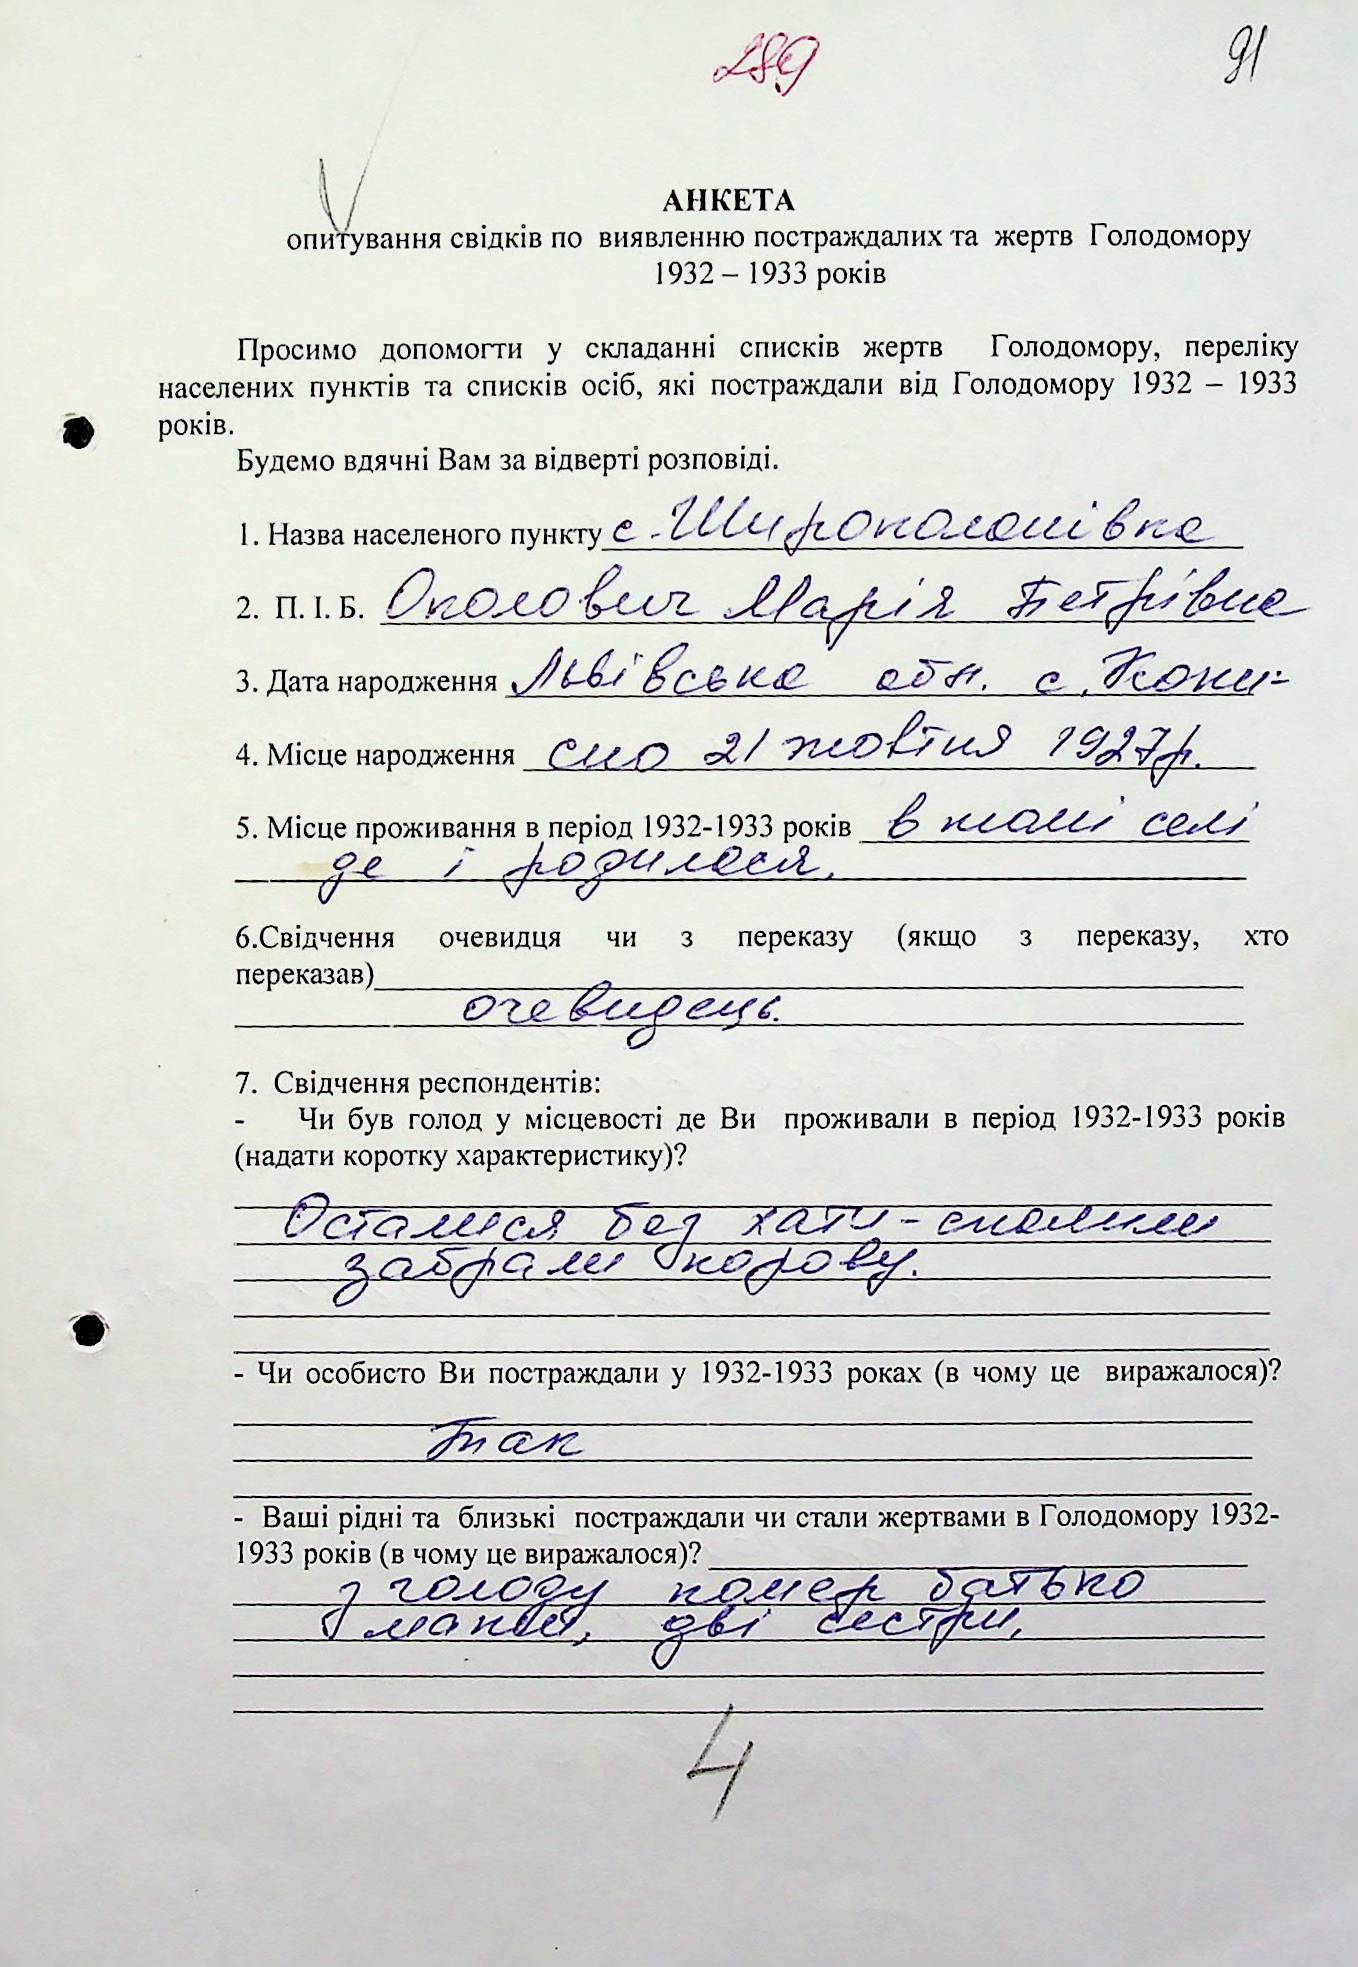 289
91
АНКЕТА
опитування свідків по виявленню постраждалих та жертв Голодомору
1932 – 1933 років
Просимо допомогти у складанні списків жертв Голодомору, переліку
населених пунктів та списків осіб, які постраждали від Голодомору 1932 – 1933
років.
Будемо вдячні Вам за відверті розповіді.
1. Назва населеного пункту с. Широколанівка
2. П. І. Б. Околович Марія Петрівна
3. Дата народження Львівська обл. с.
4. Місце народження 21 жовтня 1927р.
5. Місце проживання в період 1932-1933 років в томі селі
де і родилася.
6.Свідчення очевидця чи з переказу (якщо з переказу, хто
переказав)
очевидець.
7. Свідчення респондентів:
- Чи був голод у місцевості де Ви проживали в період 1932-1933 років
(надати коротку характеристику)?
Осталися без хати - спалили
забрали корову.
- Чи особисто Ви постраждали у 1932-1933 роках (в чому це виражалося)?
Так
- Ваші рідні та близькі постраждали чи стали жертвами в Голодомору 1932-
1933 років (в чому це виражалося)?
з голоду помер батько
дві сестри,
4